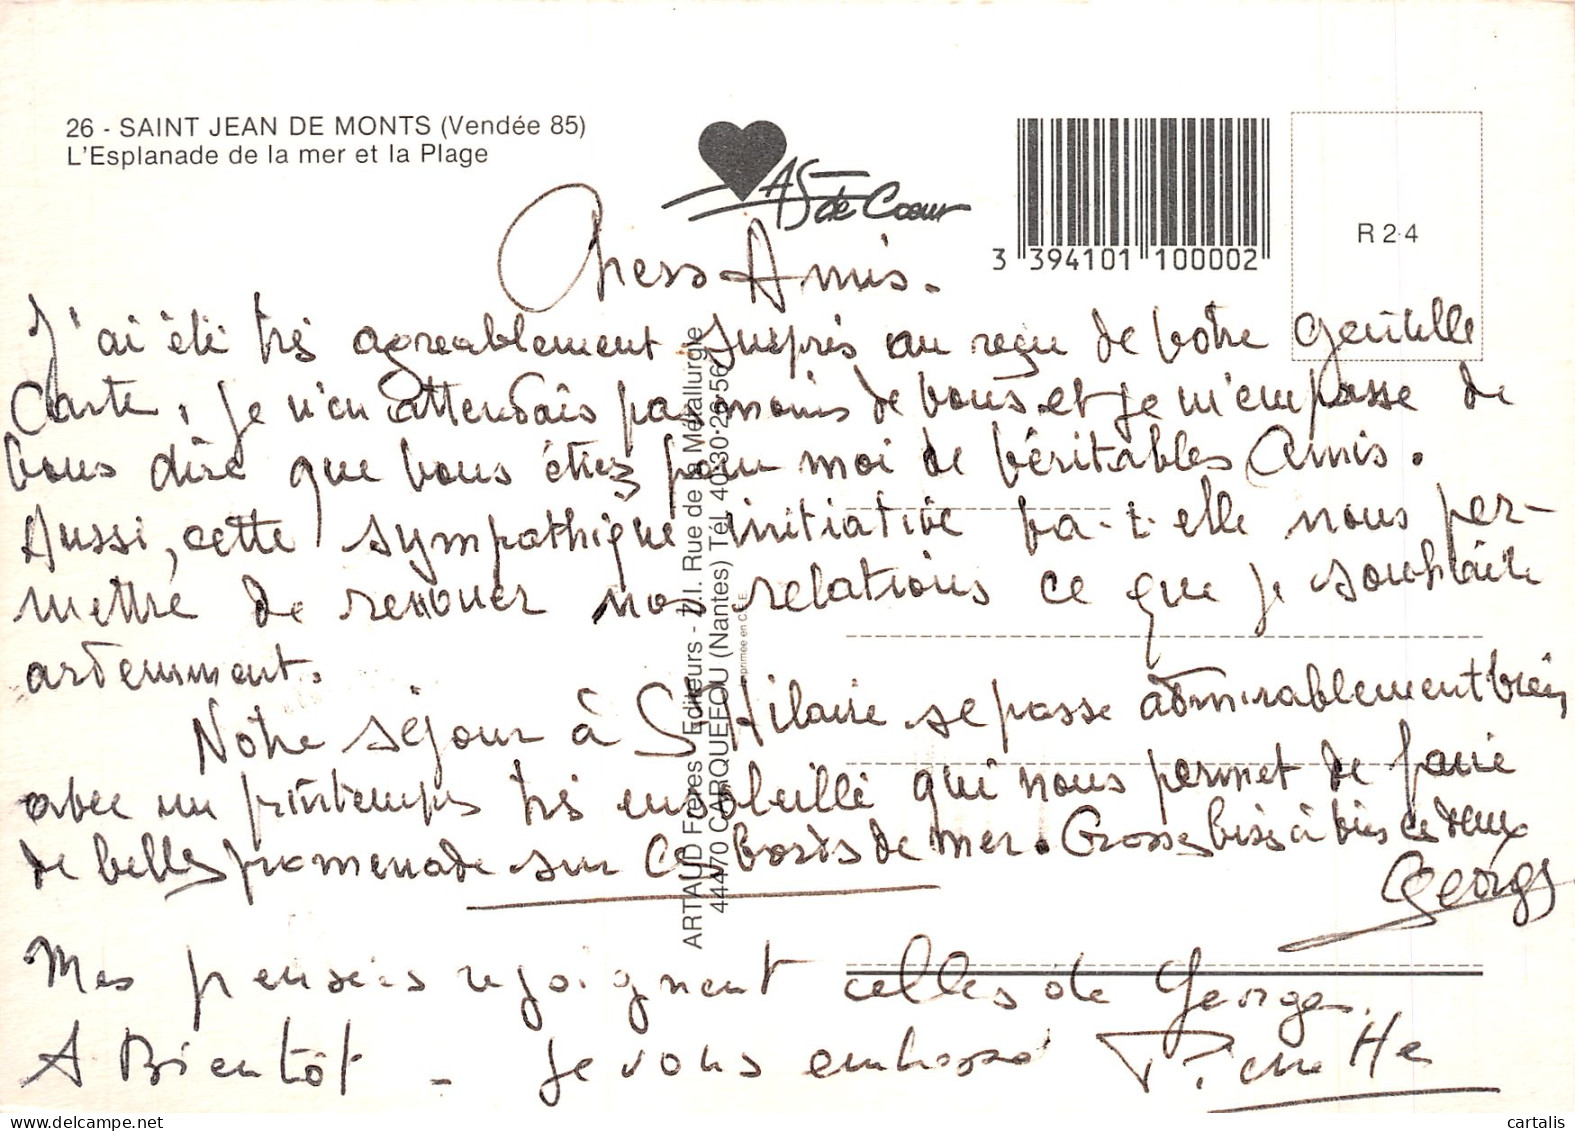 26 - SAINT JEAN DE MONTS (Vendée 85)
L'Esplanade de la mer et la Plage
AS de Coeur
3 394101 100002
R 2·4
ARTAUD Frères Editeurs - Z.I. Rue de la Métallurgie
44470 CARQUEFOU (Nantes) Tél. 40·30·26·56
Imprimée en C.E.E.
Chers Amis.
J'ai été très agréablement surpris au reçu de votre gentille
Carte, je n'en attendais pas moins de vous et je m'empresse de
vous dire que vous êtes pour moi de véritables Amis.
Aussi, cette sympathique initiative va-t-elle nous per-
mettre de renouer nos relations ce que je souhaite
ardemment.
Notre séjour à St Hilaire se passe admirablement bien,
avec un printemps très ensoleillé qui nous permet de faire
de belles promenade sur ces bords de mer. Grosses bises à vous deux
Georges
Mes pensées rejoignent celles de Georges.
A Bientôt - je vous embrasse Pierrette
cartalis